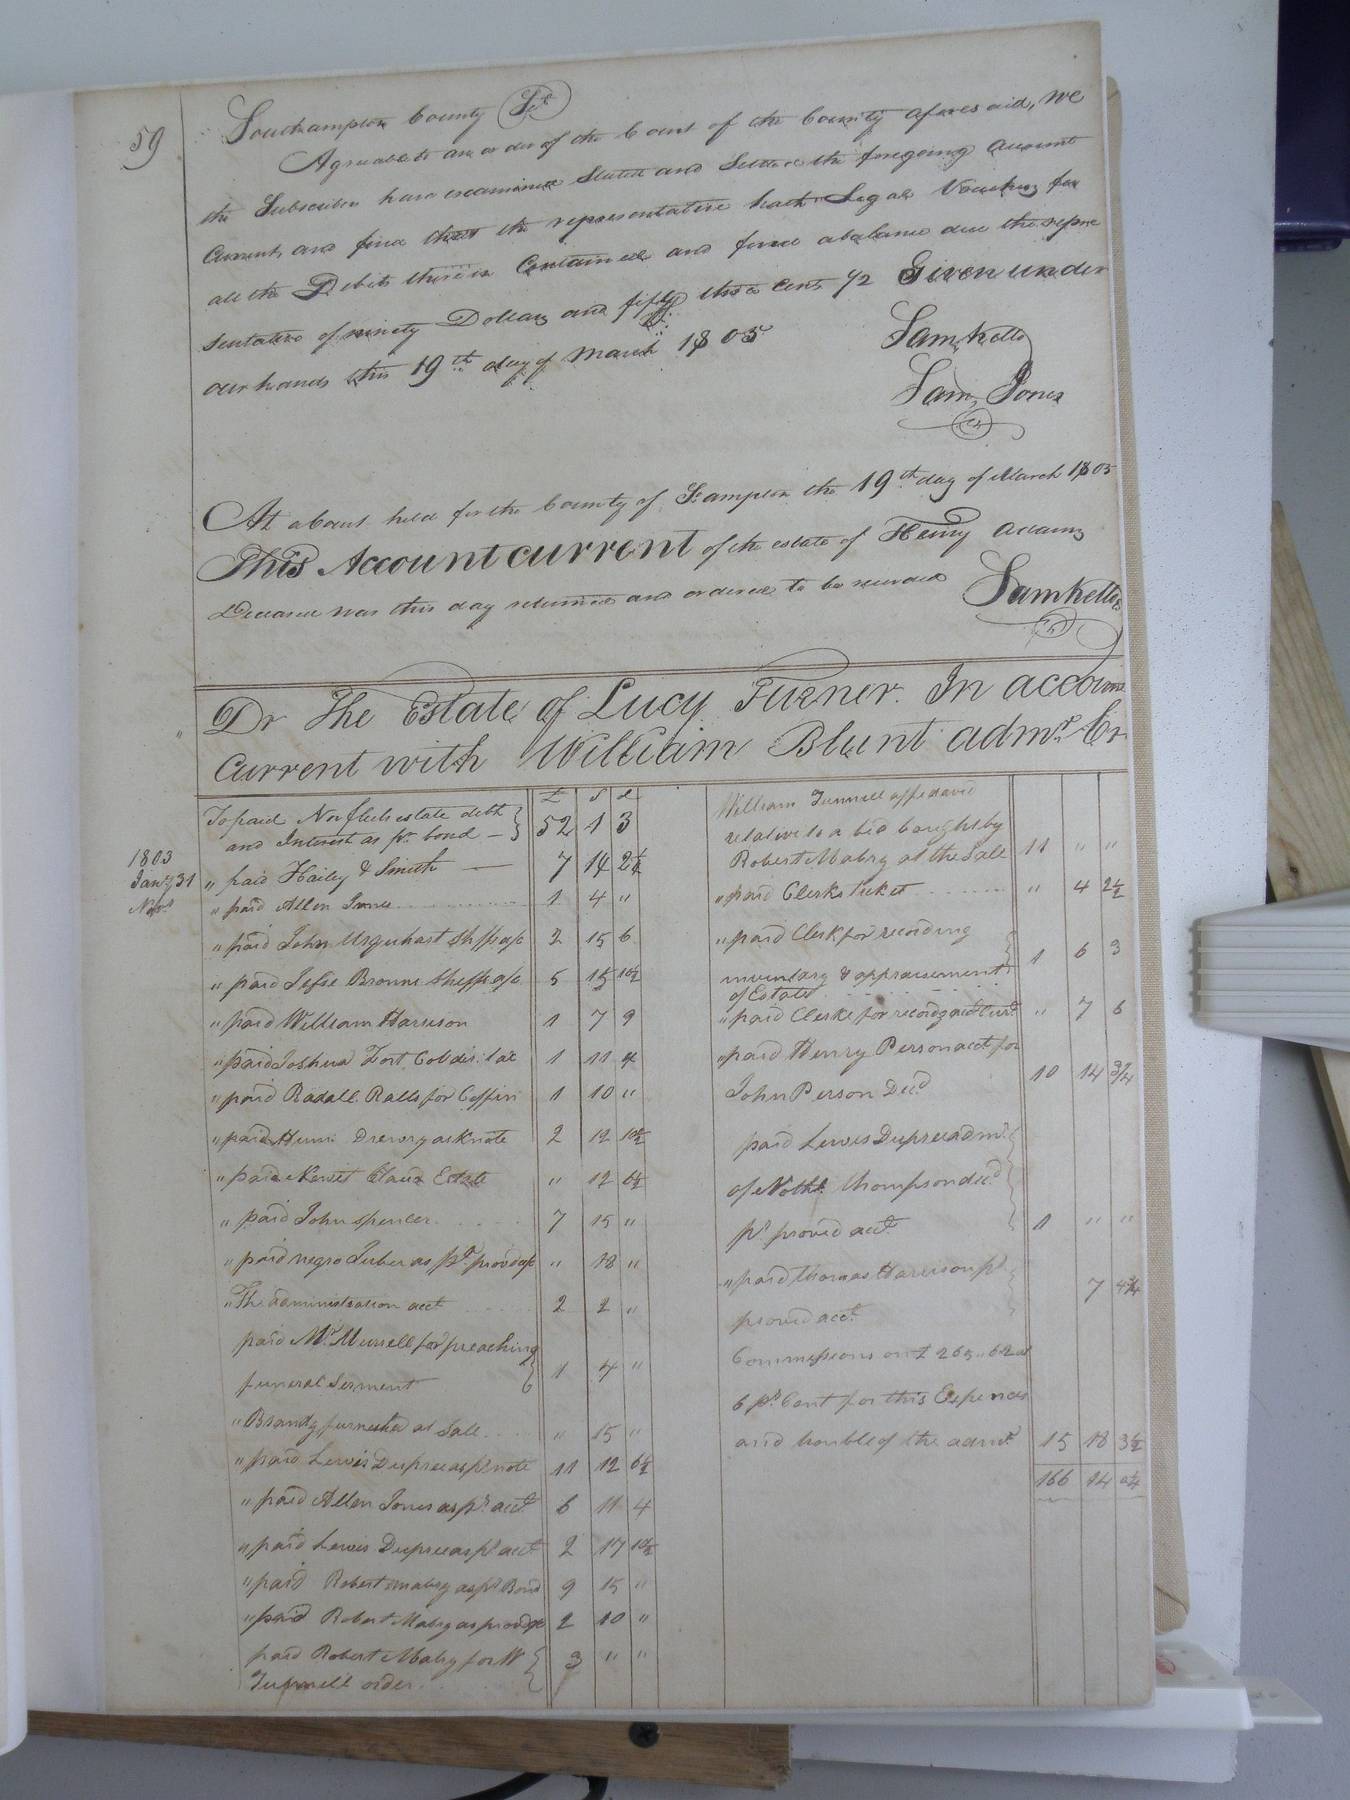 59
Southampton County Sct
Agreeable to an order of the Court of the County aforesaid, We
the Subscribers have examined Stated and Settled the foregoing account
Current, and find that the representative hath Legal Vouchers for
all the Debits therein Contained and find a balance due the repre
sentative of ninety Dollars and fifty three Cents 1/2 Given under
our hands this 19th day of March 1805
Sam Kello
Sam Jones
At a Court held for the County of S:ampton the 19th day of March 1805
This Account current of the estate of Henry Adams
Deceased was this day returned and ordered to be recorded
Sam Kello
Dr The Estate of Lucy Turner. In account
Current with William Blunt admr. Cr.
£ S d
To paid Norfleets estate debt
and Interest as pr. bond — 52 1 3
1803
Jany 31 " paid Hailey & Smith — 7 14 2 1/4
Novr. " paid Allen Jones 1 4 "
" paid John Urquhart Shff a/c 2 15 6
" paid Jesse Browne Sheff a/c 5 15 10 1/2
" paid William Harrison 1 7 9
" paid Joshua Fort 1 11 4
" paid Radall Ralls for Coffin 1 10 "
" paid Drewry as pr note 2 12 10 1/2
" paid Newit Claud Estate " 12 6 1/2
" paid John Spencer 7 15 "
" paid negro as pr. provd a/c " 18 "
" The administration acct 2 2 "
paid Mr. Murrell for preaching
funeral Serment 1 4 "
" Brandy furnished at Sale " 15 "
" paid Lewis Dupree as pr note 11 12 6 1/2
" paid Allen Jones as pr. acct 6 11 4
" paid Lewis Dupree as pr acct 2 17 10 1/2
" paid Robert Mabry as pr Bond 9 15 "
" paid Robert Mabry as provd a/c 2 10 "
paid Robert Mabry for W
Tunnell order 3 " "
William Tunnell affedavid
relative to a bed bought by
Robert Mabry at the Sale 11 " "
" paid Clerks ticket " 4 2 1/2
" paid Clerk for recording
inventary & appraisement
of Estate 1 6 3
" paid Clerke for recordg acct Curt " 7 6
" paid Henry Person acct for
John Person Decd 10 14 3/4
paid Lewis Dupree admr.
of Nathl. Thompson decd
pr. proved acct. 1 " "
" paid Thomas Harrison pr
proved acct. 7 4 3/4
Commissions on £ 265
6 pr. Cent for this Expences
and trouble of the admr. 15 18 3 1/2
166 14